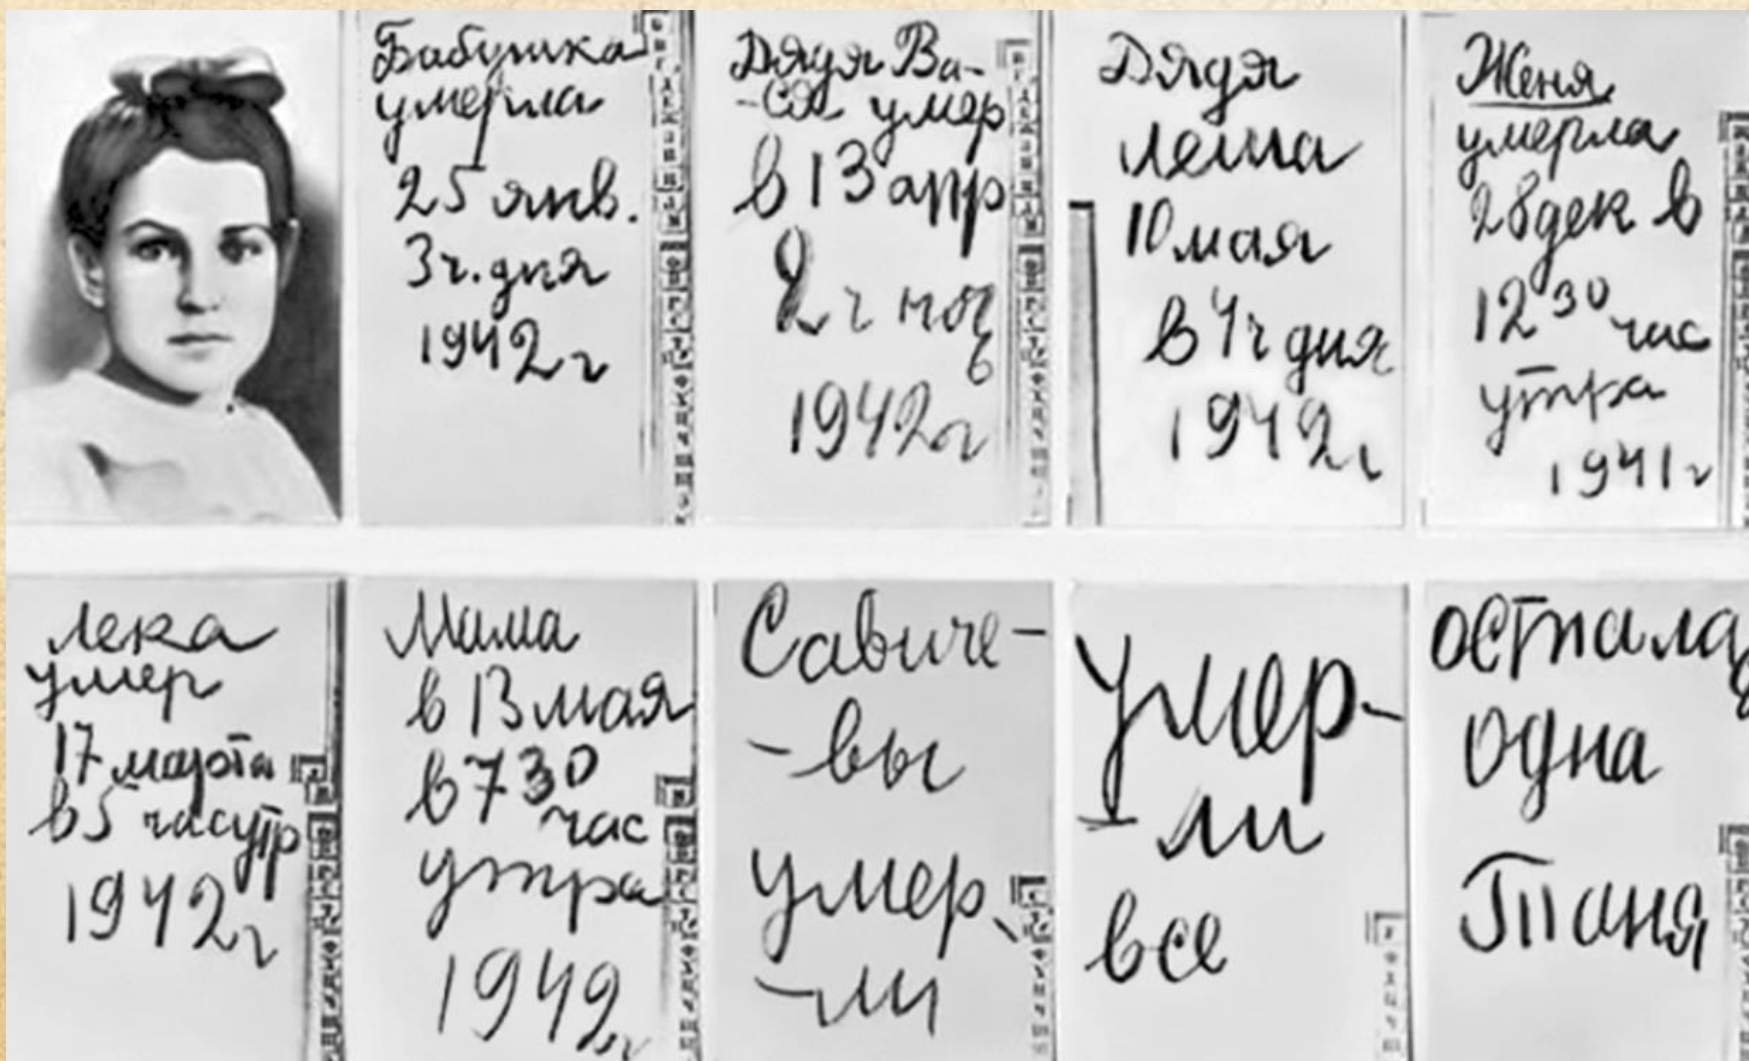 Бабушка
умерла
25 янв.
3ч. дня
1942г
Дядя Ва-
-ся умер
в 13 апр
2ч ноч
ь
1942г
Дядя
Леша
10 мая
в 4ч дня
1942г
Женя
умерла
28 дек в
12 30 час
утра
1941г
Лека
умер
17 марта
в 5 часутр
1942г
Мама
в 13 мая
в 7 30
час
утра
1942г
Савиче-
-вы
умер
-ли
Умер-
-ли
все
Осталась
одна
Таня